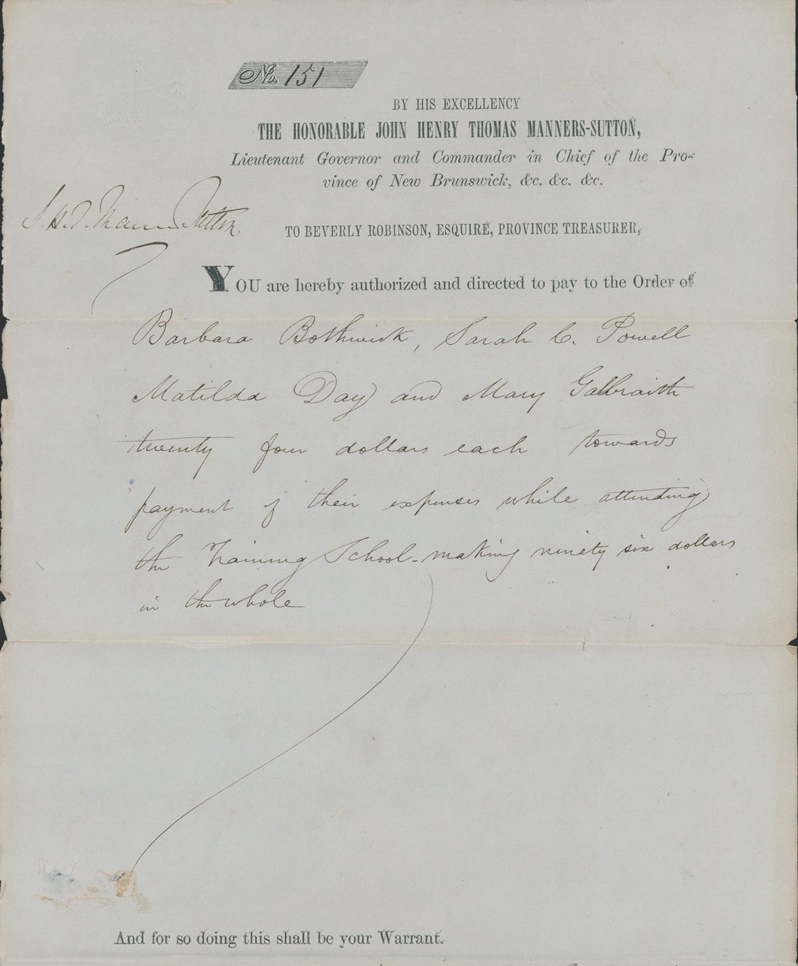 No. 151
BY HIS EXCELLENCY
THE HONORABLE JOHN HENRY THOMAS MANNERS-SUTTON,
Lieutenant Governor and Commander in Chief of the Pro-
vince of New Brunswick, &c. &c. &c.
J. H. T. Manners Sutton.
TO BEVERLY ROBINSON, ESQUIRE, PROVINCE TREASURER,
YOU are hereby authorized and directed to pay to the Order of
Barbara Bothwick, Sarah C. Powell
Matilda Day and Mary Galbraith
twenty four dollars each towards
payment of their expenses while attending
the Training School - making ninety six dollars
in the whole
And for so doing this shall be your Warrant.